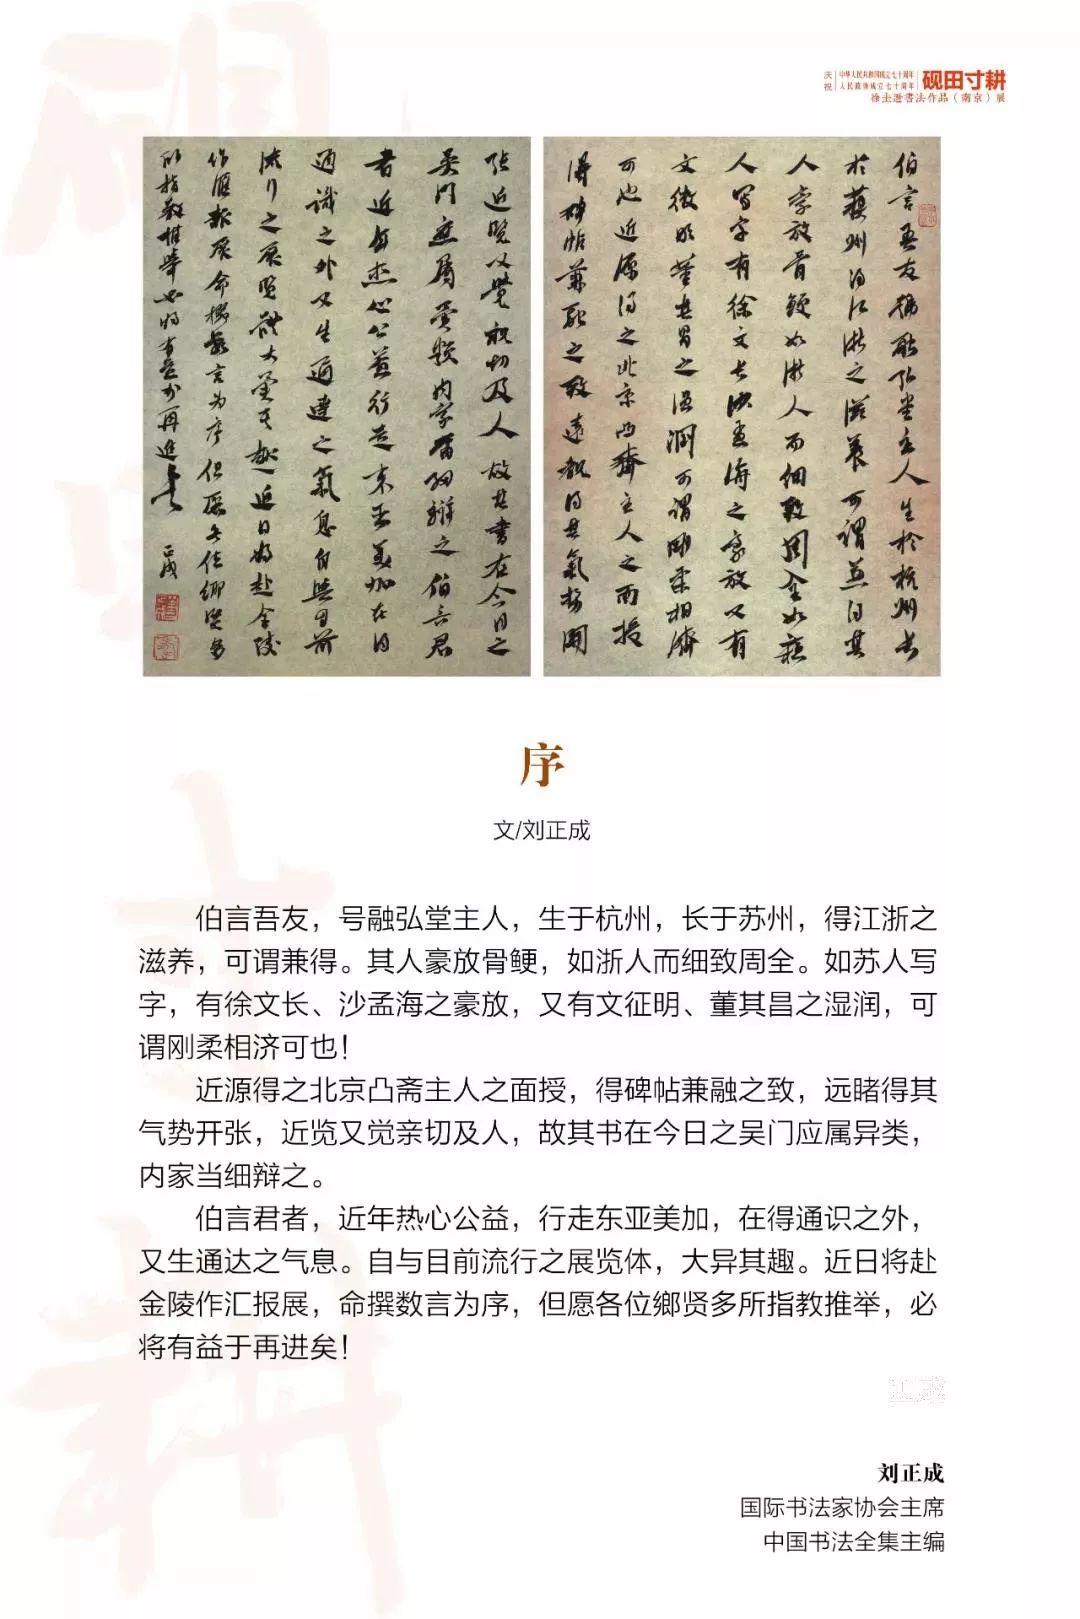 庆祝
中华人民共和国成立七十周年
人民政协成立七十周年
砚田寸耕
徐圭逊書法作品（南京）展
伯言吾友號融弘堂主人生於杭州長
於蘇州得江浙之滋養可謂兼得其
人豪放骨鯁如浙人而细致周全如蘇
人写字有徐文长沙孟海之豪放又有
文徵明董其昌之湿潤可谓刚柔相濟
可也近源得之北京凸齋主人之面授
得碑帖兼融之致遠覩得其氣势開
张近覽又覺親切及人故其書在今日之
吴门應属异類内家當细辯之伯言君
者近年热心公益行走東亚美加在得
通識之外又生通達之氣息自與目前
流行之展览體大異其趣近日将赴金陵
作匯報展命撰數言为序但愿各位鄉賢多
所指教推举必将有益於再進矣
正成
序
文/刘正成
伯言吾友，号融弘堂主人，生于杭州，长于苏州，得江浙之
滋养，可谓兼得。其人豪放骨鲠，如浙人而细致周全。如苏人写
字，有徐文长、沙孟海之豪放，又有文征明、董其昌之湿润，可
谓刚柔相济可也！
近源得之北京凸斋主人之面授，得碑帖兼融之致，远睹得其
气势开张，近览又觉亲切及人，故其书在今日之吴门应属异类，
内家当细辩之。
伯言君者，近年热心公益，行走东亚美加，在得通识之外，
又生通达之气息。自与目前流行之展览体，大异其趣。近日将赴
金陵作汇报展，命撰数言为序，但愿各位鄉贤多所指教推举，必
将有益于再进矣！
正成
刘正成
国际书法家协会主席
中国书法全集主编
砚
田
寸
耕